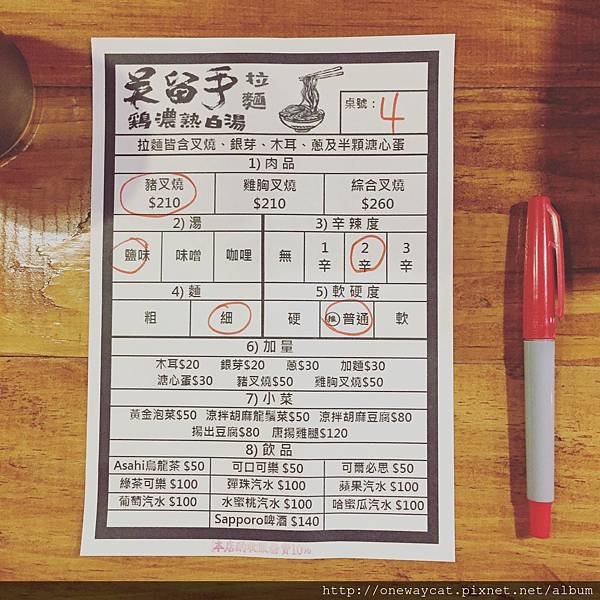 吴留手 拉麵
鷄濃熟白湯
桌號： 4
拉麵皆含叉燒、銀芽、木耳、蔥及半顆溏心蛋
1) 肉品
豬叉燒 雞胸叉燒 綜合叉燒
$210 $210 $260
2) 湯 3) 辛辣度
鹽味 味噌 咖哩 無 1辛 2辛 3辛
4) 麵 5) 軟硬度
粗 細 硬 推 普通 軟
6) 加量
木耳$20 銀芽$20 蔥$30 加麵$30
溏心蛋$30 豬叉燒$50 雞胸叉燒$50
7) 小菜
黃金泡菜$50 涼拌胡麻龍鬚菜$50 涼拌胡麻豆腐$80
揚出豆腐$80 唐揚雞腿$120
8) 飲品
Asahi烏龍茶 $50 可口可樂 $50 可爾必思 $50
綠茶可樂 $100 彈珠汽水 $100 蘋果汽水 $100
葡萄汽水 $100 水蜜桃汽水 $100 哈蜜瓜汽水 $100
Sapporo啤酒 $140
本店酌收服務費10%
http://onewaycat.pixnet.net/album